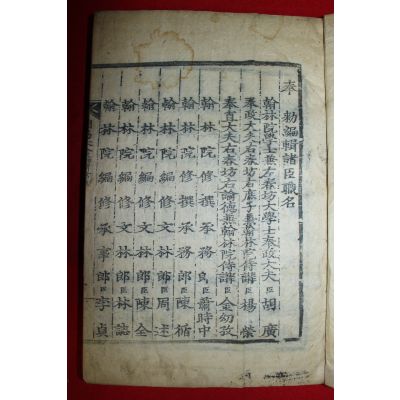 奉
勑編輯諸臣職名
翰林院學士兼左春坊大學士奉政大夫臣胡廣
奉政大夫右春坊右庶子兼翰林院侍講臣楊榮
奉直大夫右春坊右諭德兼翰林院侍講臣金幼孜
翰林院修撰承務郎臣蕭時中
翰林院修撰承務郎臣陳循
翰林院編修文林郎臣周述
翰林院編修文林郎臣陳全
翰林院編修文林郎臣林誌
翰林院編修承事郎臣李貞